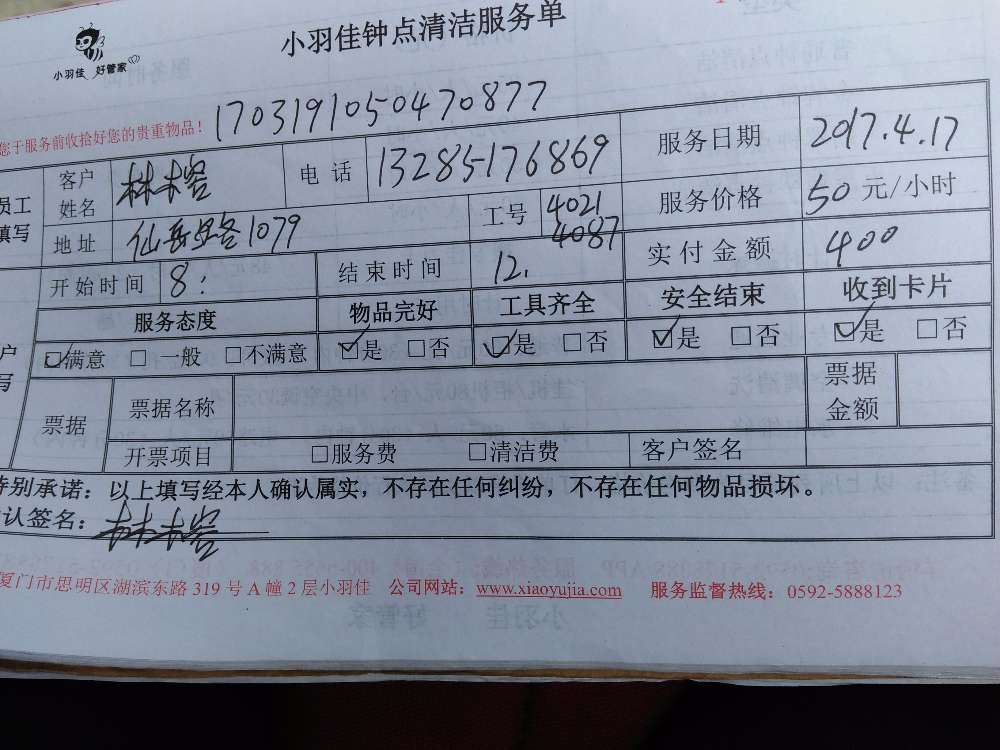 小羽佳钟点清洁服务单
小羽佳 好管家
您于服务前收拾好您的贵重物品! 1703191050470877
员工填写 客户姓名 电话 13285176869 服务日期 2017.4.17
地址 仙岳路1079 工号 4021 4087 服务价格 50元/小时
开始时间 8: 结束时间 12. 实付金额 400
服务态度 物品完好 工具齐全 安全结束 收到卡片
☑满意 □一般 □不满意 ☑是 □否 ☑是 □否 ☑是 □否 ☑是 □否
票据 票据名称 票据金额
开票项目 □服务费 □清洁费 客户签名
特别承诺:以上填写经本人确认属实,不存在任何纠纷,不存在任何物品损坏。
认签名:
厦门市思明区湖滨东路319号A幢2层小羽佳 公司网站:www.xiaoyujia.com 服务监督热线:0592-5888123